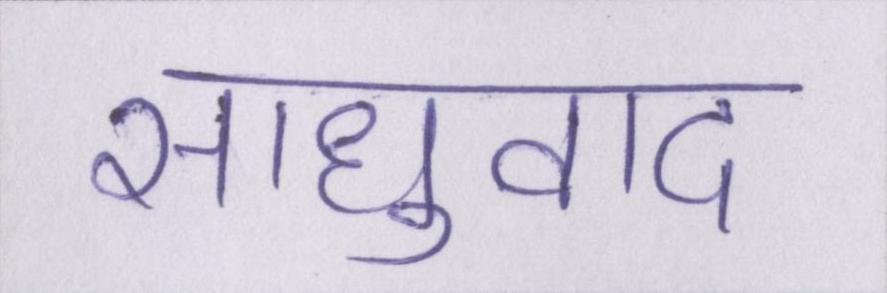 साधुवाद